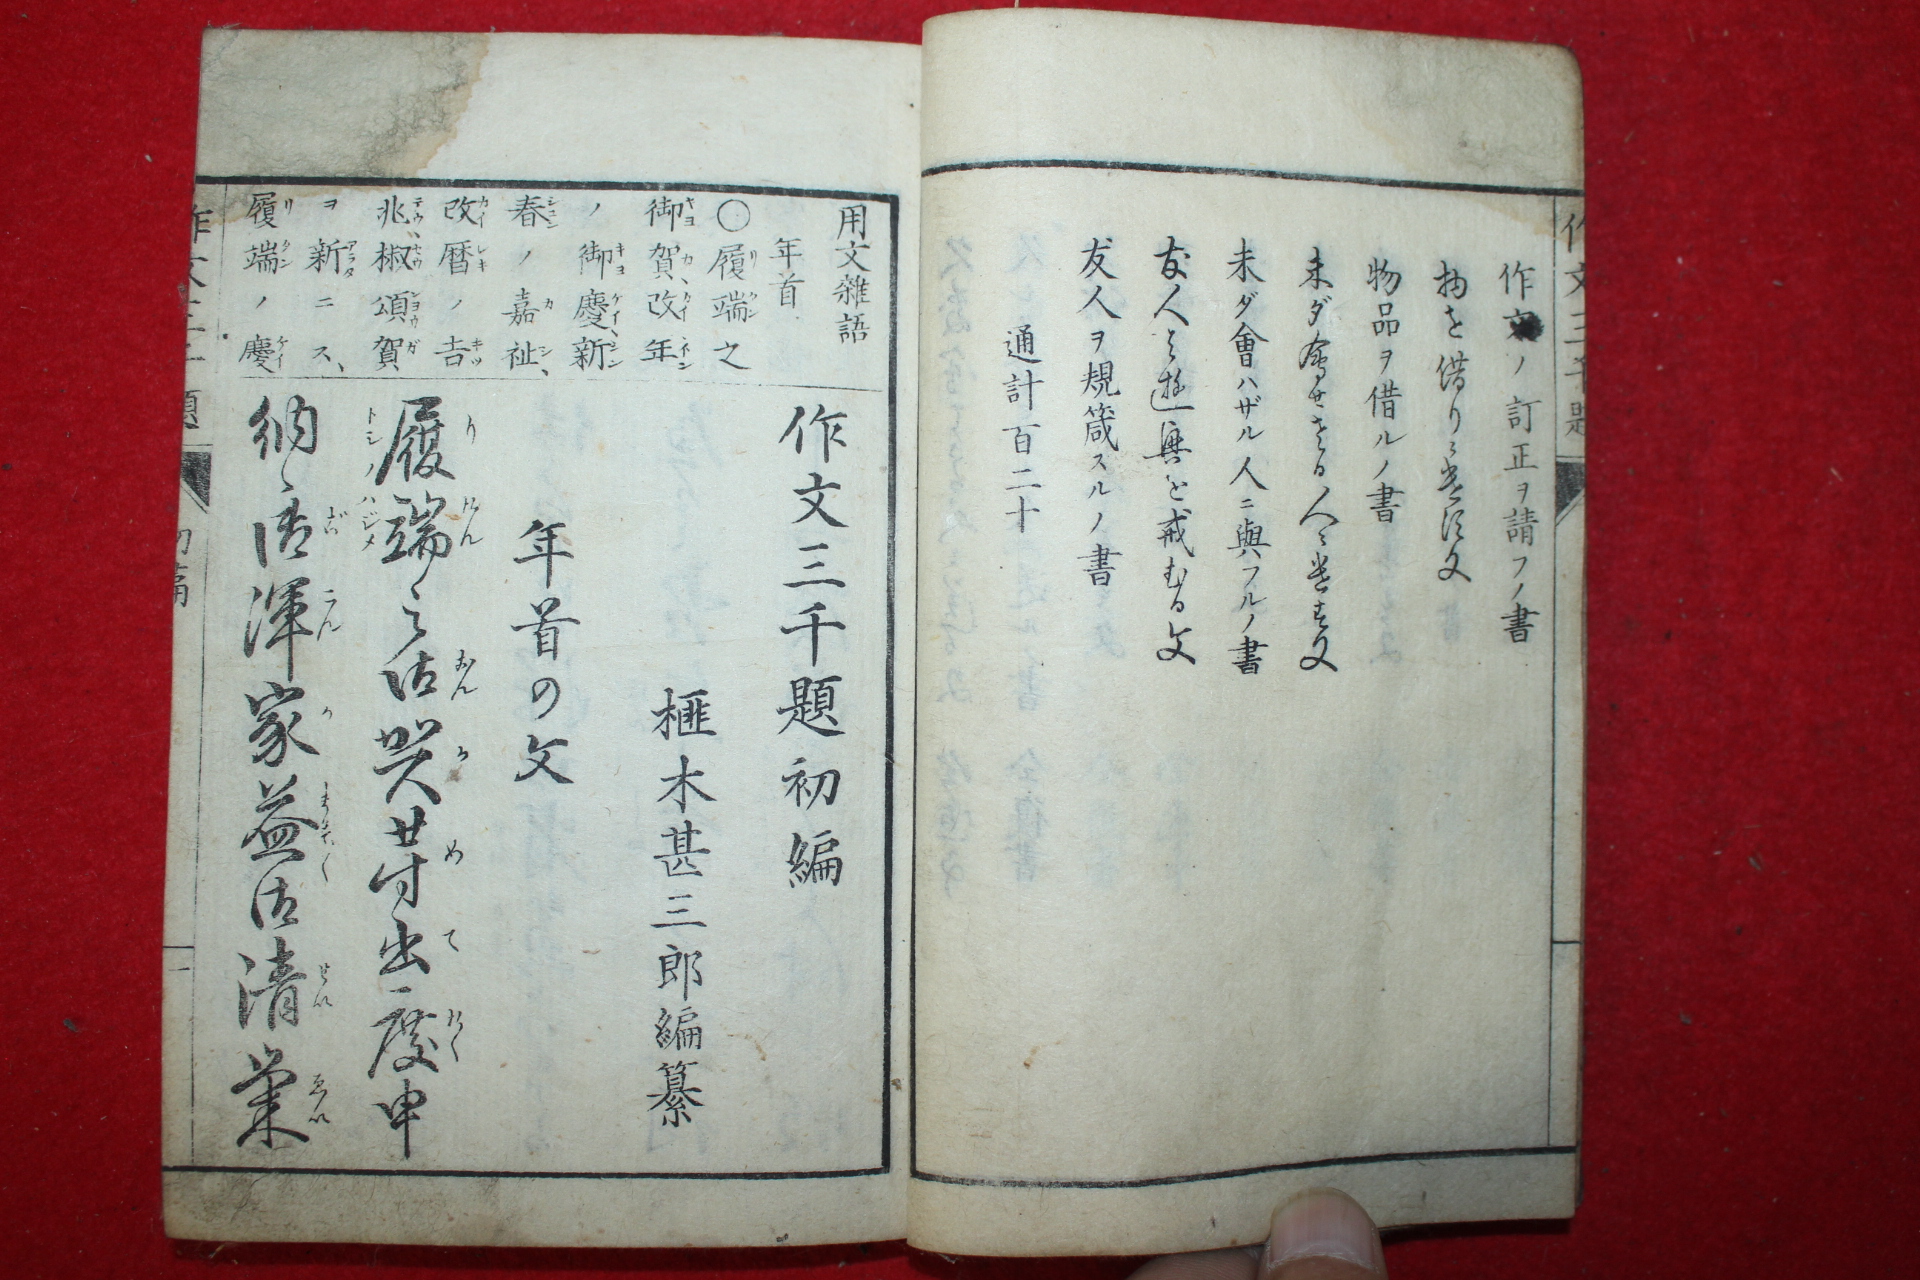 作文三千題
作文ノ訂正ヲ請フノ書
物を借りに遣はす文
物品ヲ借ルノ書
未ダ會せざる人に遣す文
未ダ會ハザル人ニ與フルノ書
友人之遊興を戒むる文
友人ヲ規箴スルノ書
通計百二十
用文雑語
年首
〇履端之
御賀、改年
ノ御慶、新
春ノ嘉祉、
改暦ノ吉
兆、椒頌賀
ヲ新ニス、
履端ノ慶
作文三千題初編
榧木甚三郎編纂
年首の文
履端之御嘉芽出度申
納候渾家益御清榮
作文三千題
初篇
一